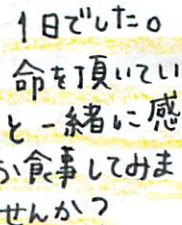 1日でした。
命を頂いてい
と一緒に感
お食事してみま
せんか?